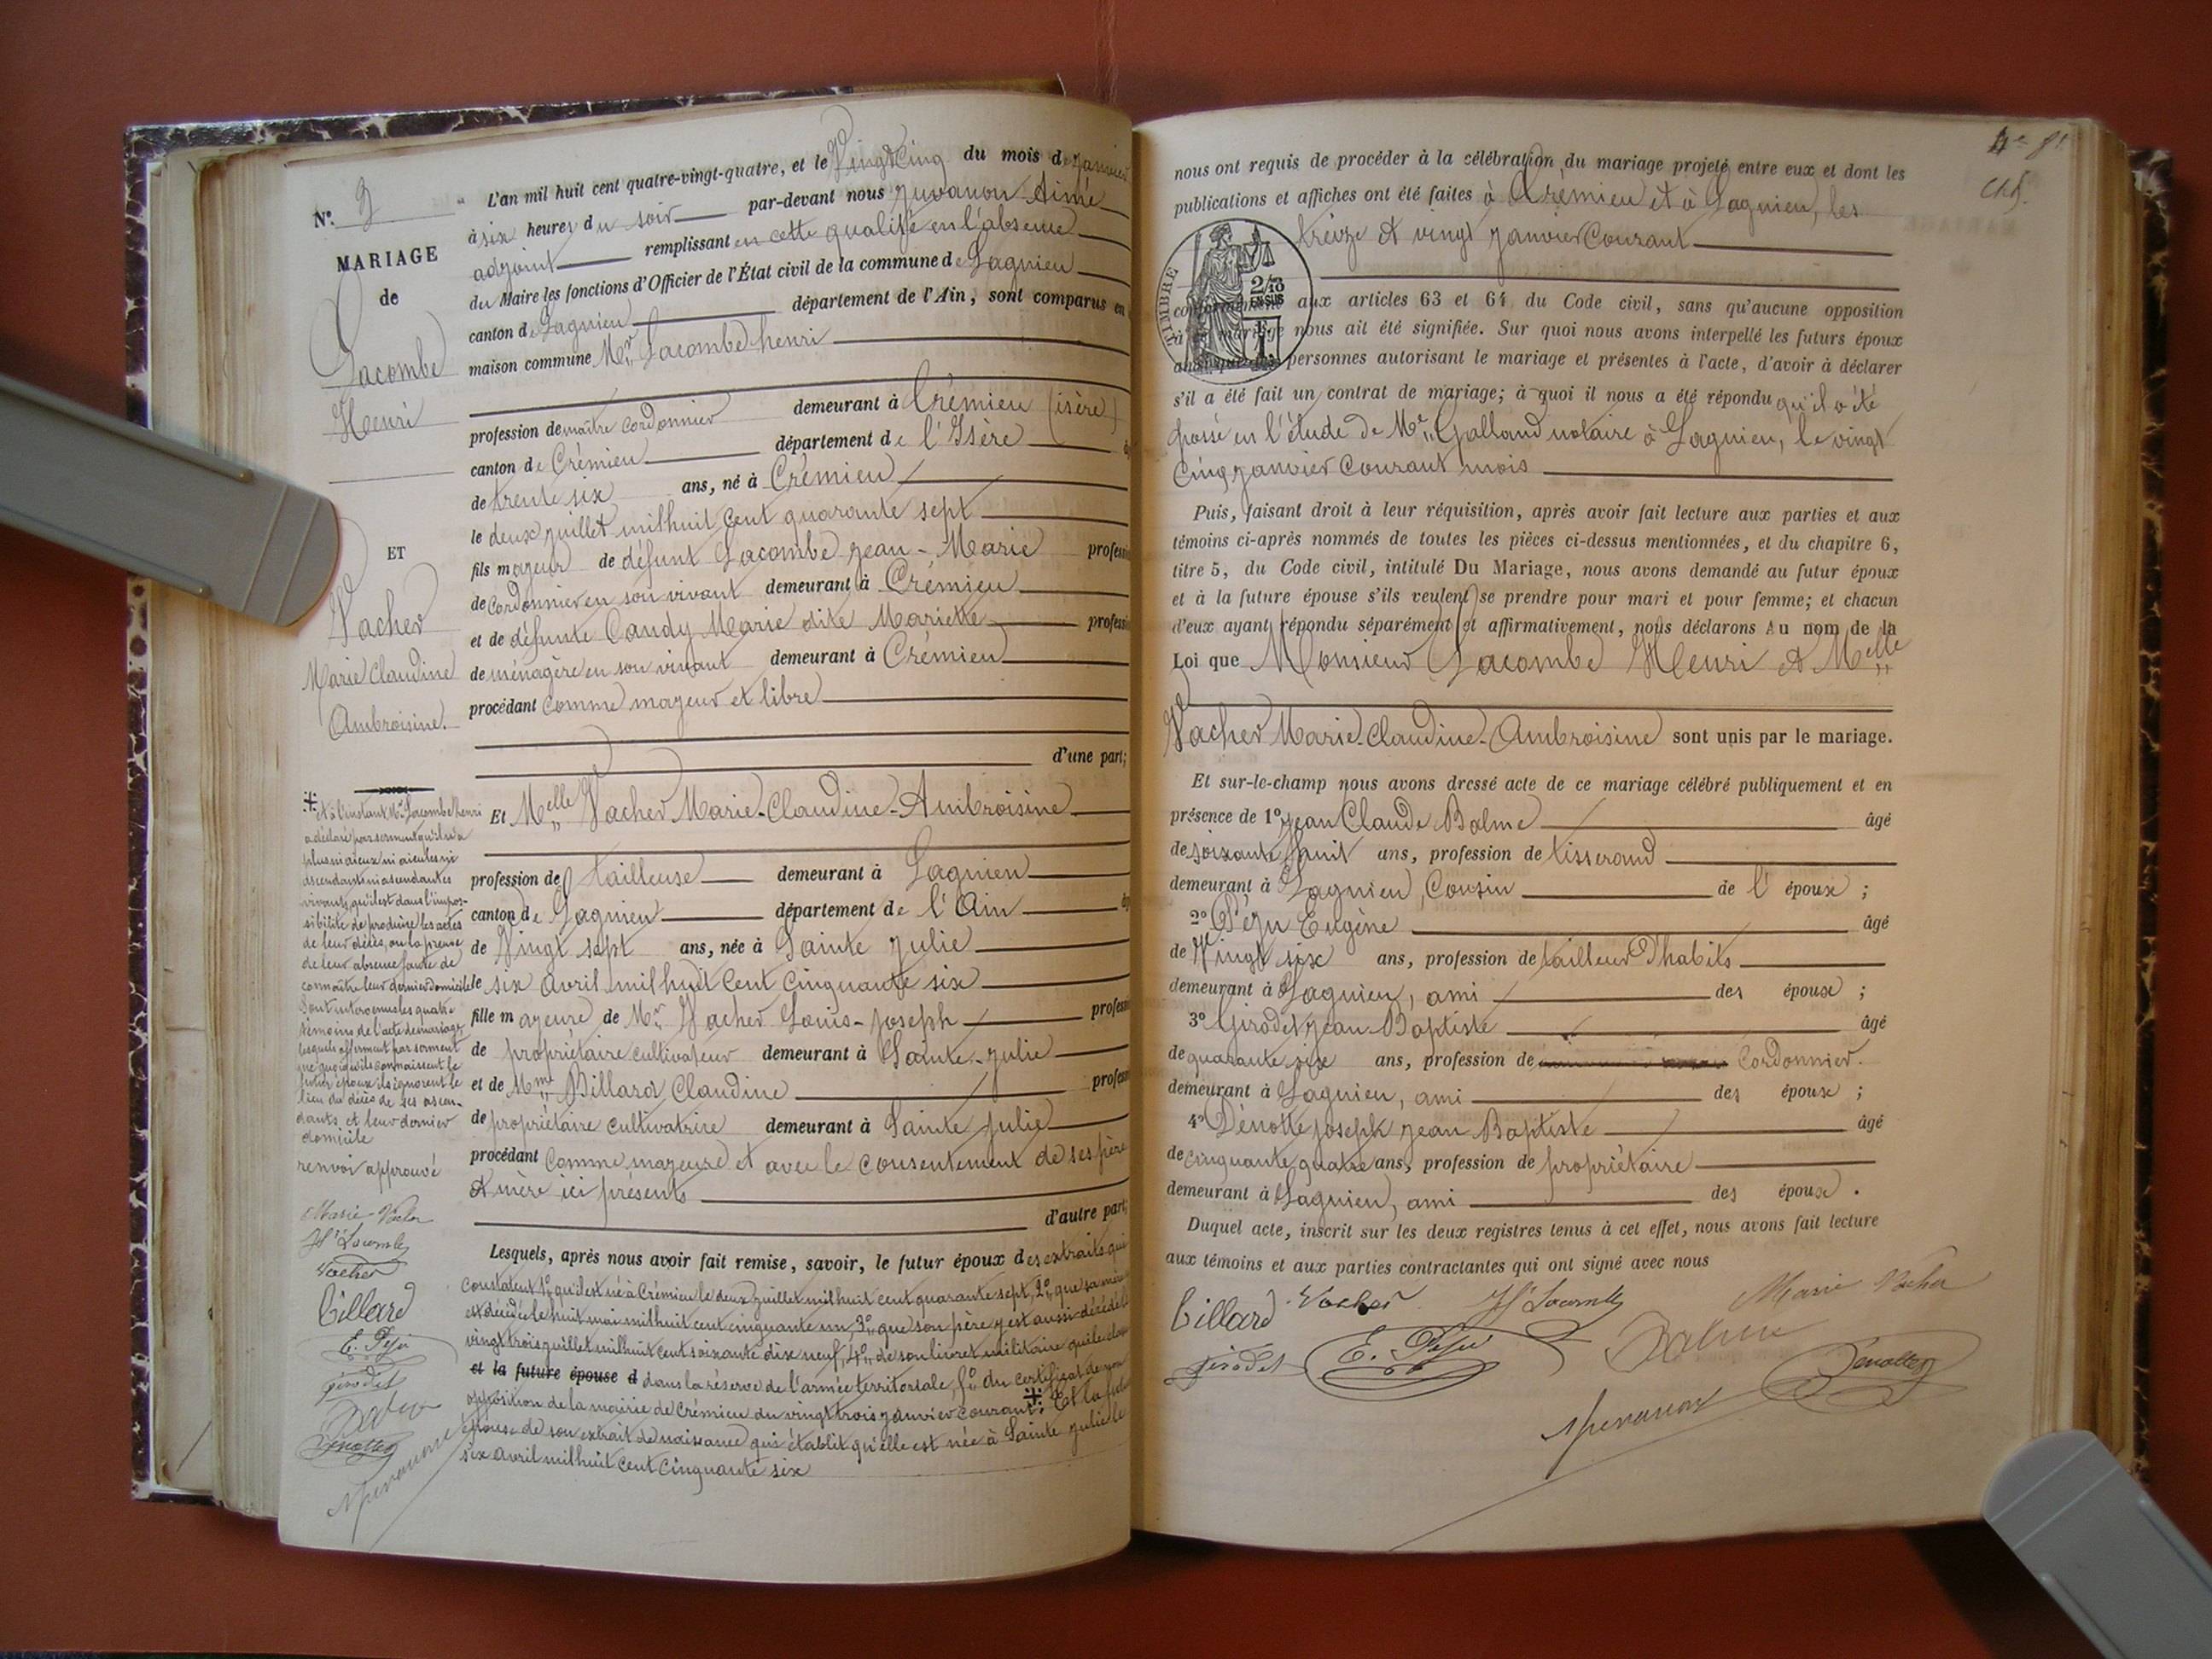 N°. 3
MARIAGE
de
Lacombe
Henri
ET
Vacher
Marie Claudine
Ambroisine.
L'an mil huit cent quatre-vingt-quatre, et le Vingt Cinq du mois de janvier
à six heures du soir par-devant nous Juvanon Aimé
adjoint remplissant en cette qualité en l'absence
du Maire les fonctions d'Officier de l'État civil de la commune de Lagnieu
canton de Lagnieu département de l'Ain, sont comparus en
maison commune Mr. Lacombe henri
profession de maître cordonnier demeurant à Crémieu (isère)
canton de Crémieu département de l'Isère
de trente six ans, né à Crémieu
le deux juillet mil huit cent quarante sept
fils majeur de défunt Lacombe jean-Marie profess
de Cordonnier en son vivant demeurant à Crémieu
et de défunte Candy Marie dite Mariette profess
de ménagère en son vivant demeurant à Crémieu
procédant comme majeur et libre
d'une part;
Et Melle Vacher Marie-Claudine-Ambroisine
profession de tailleuse demeurant à Lagnieu
canton de Lagnieu département de l'Ain
de Vingt sept ans, née à Sainte julie
le six avril mil huit cent cinquante six
fille majeure de Mr. Vacher Louis-joseph profess
de propriétaire cultivateur demeurant à Sainte-julie
et de Mme Billard Claudine profess
de propriétaire cultivatrice demeurant à Sainte julie
procédant comme majeure et avec le consentement de ses père
et mère ici présents
d'autre part;
Lesquels, après nous avoir fait remise, savoir, le futur époux des extraits qui
constatent 1° qu'il est né à Crémieu le deux juillet mil huit cent quarante sept, 2° que sa mère
est décédée le huit mai mil huit cent cinquante un, 3° que son père y est aussi décédé le
vingt trois juillet mil huit cent soixante dix neuf, 4° de son livret militaire qui le
et la future épouse d dans la réserve de l'armée territoriale, 5° du certificat de non
opposition de la mairie de Crémieu du vingt trois janvier courant. ⁜ Et la future
épouse de son extrait de naissance qui établit qu'elle est née à Sainte julie le
six avril mil huit cent cinquante six
⁜ Et à l'instant Mr. Lacombe henri
a déclaré par serment qu'il n'a
plus ni aïeux ni aïeules ni
ascendants ni ascendantes
vivants, qu'il est dans l'impos-
sibilité de produire les actes
de leur décès, ou la preuve
de leur absence faute de
connaître leur dernier domicile
Sont intervenus les quatre
témoins de l'acte de mariage
lesquels affirment par serment
que quoiqu'ils connaissent le
futur époux ils ignorent le
lieu du décès de ses ascen-
dants et leur dernier
domicile
renvoi approuvé
Marie Vacher
Hri Lacombe
Vacher
Billard
E. Péju
Girodet
Balme
Dénotte
Juvanon
nous ont requis de procéder à la célébration du mariage projeté entre eux et dont les
publications et affiches ont été faites à Crémieu et à Lagnieu, les
treize et vingt janvier Courant
TIMBRE
2/10
EN SUS
conformément aux articles 63 et 64 du Code civil, sans qu'aucune opposition
à ce mariage nous ait été signifiée. Sur quoi nous avons interpellé les futurs époux
ainsi que les personnes autorisant le mariage et présentes à l'acte, d'avoir à déclarer
s'il a été fait un contrat de mariage; à quoi il nous a été répondu qu'il a été
passé en l'étude de Me. Galland notaire à Lagnieu, le vingt
Cinq janvier Courant mois
Puis, faisant droit à leur réquisition, après avoir fait lecture aux parties et aux
témoins ci-après nommés de toutes les pièces ci-dessus mentionnées, et du chapitre 6,
titre 5, du Code civil, intitulé Du Mariage, nous avons demandé au futur époux
et à la future épouse s'ils veulent se prendre pour mari et pour femme; et chacun
d'eux ayant répondu séparément et affirmativement, nous déclarons Au nom de la
Loi que Monsieur Lacombe Henri et Melle
Vacher Marie-Claudine-Ambroisine sont unis par le mariage.
Et sur-le-champ nous avons dressé acte de ce mariage célébré publiquement et en
présence de 1° jean Claude Balme âgé
de soixante huit ans, profession de tisserand
demeurant à Lagnieu, Cousin de l'époux ;
2° Péju Eugène âgé
de Vingt six ans, profession de tailleur d'habits
demeurant à Lagnieu, ami des époux ;
3° Girodet jean-Baptiste âgé
de quarante six ans, profession de Cordonnier.
demeurant à Lagnieu, ami des époux ;
4° Dénotte joseph jean Baptiste âgé
de cinquante quatre ans, profession de propriétaire
demeurant à Lagnieu, ami des époux.
Duquel acte, inscrit sur les deux registres tenus à cet effet, nous avons fait lecture
aux témoins et aux parties contractantes qui ont signé avec nous
Billard Vacher Hri Lacombe Marie Vacher
Girodet E. Péju Balme Dénotte
Juvanon